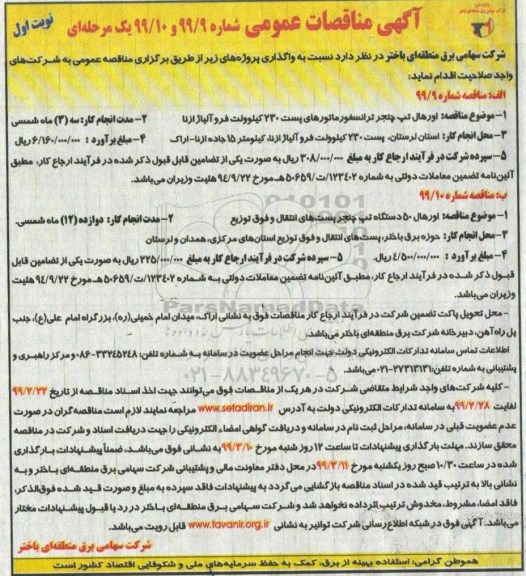 نوبت اول
آگهی مناقصات عمومی شماره ۹۹/۹ و ۹۹/۱۰ یک مرحله‌ای
شرکت سهامی برق منطقه‌ای باختر در نظر دارد نسبت به واگذاری پروژه‌های زیر از طریق برگزاری مناقصه عمومی به شرکت‌های
واجد صلاحیت اقدام نماید:
الف: مناقصه شماره ۹۹/۹
۱- موضوع مناقصه: اورهال تپ چنجر ترانسفورماتورهای پست ۲۳۰ کیلوولت فرو آلیاژ ازنا ۲- مدت انجام کار: سه (۳) ماه شمسی
۳- محل انجام کار: استان لرستان، پست ۲۳۰ کیلوولت فرو آلیاژ ازنا، کیلومتر ۱۵ جاده ازنا-اراک ۴- مبلغ برآورد : ۶/۱۶۰/۰۰۰/۰۰۰ ریال
۵- سپرده شرکت در فرآیند ارجاع کار به مبلغ ۳۰۸/۰۰۰/۰۰۰ ریال به صورت یکی از تضامین قابل قبول ذکر شده در فرآیند ارجاع کار، مطابق
آئین‌نامه تضمین معاملات دولتی به شماره ۱۲۳۴۰۲/ت۵۰۶۵۹ هـ مورخ ۹۴/۹/۲۲ هئیت وزیران می‌باشد.
ب: مناقصه شماره ۹۹/۱۰
۱- موضوع مناقصه: اورهال ۵۰ دستگاه تپ چنجر پست‌های انتقال و فوق توزیع ۲- مدت انجام کار: دوازده (۱۲) ماه شمسی.
۳- محل انجام کار: حوزه برق باختر، پست‌های انتقال و فوق توزیع استان‌های مرکزی، همدان و لرستان
۴- مبلغ برآورد : ۴/۵۰۰/۰۰۰/۰۰۰ ریال ۵- سپرده شرکت در فرآیند ارجاع کار به مبلغ ۲۲۵/۰۰۰/۰۰۰ ریال به صورت یکی از تضامین قابل
قبول ذکر شده در فرآیند ارجاع کار، مطابق آئین‌نامه تضمین معاملات دولتی به شماره ۱۲۳۴۰۲/ت۵۰۶۵۹ هـ مورخ ۹۴/۹/۲۲ هئیت
وزیران می‌باشد.
- محل تحویل پاکت تضمین شرکت در فرآیند ارجاع کار مناقصات فوق به نشانی اراک، میدان امام خمینی(ره)، بزرگراه امام علی(ع)، جنب
پل راه‌آهن، دبیرخانه شرکت برق منطقه‌ای باختر می‌باشد.
اطلاعات تماس سامانه تدارکات الکترونیکی دولت جهت انجام مراحل عضویت در سامانه به شماره تلفن: ۳۳۲۴۵۲۴۸-۰۸۶ و مرکز راهبری و
پشتیبانی به شماره تلفن: ۲۷۳۱۳۱۳۱-۰۲۱ می‌باشد.
- کلیه شرکت‌های واجد شرایط متقاضی شرکت در هر یک از مناقصات فوق می‌توانند جهت اخذ اسناد مناقصه از تاریخ ۹۹/۲/۲۲
لغایت ۹۹/۲/۲۸ به سامانه تدارکات الکترونیکی دولت به آدرس www.setadiran.ir مراجعه نمایند لازم است مناقصه‌گران در صورت
عدم عضویت قبلی در سامانه، مراحل ثبت نام در سامانه و دریافت گواهی امضاء الکترونیکی را جهت دریافت اسناد و شرکت در مناقصه
محقق سازند. مهلت بارگذاری پیشنهادات تا ساعت ۱۲ روز شنبه مورخ ۹۹/۳/۱۰ به نشانی فوق می‌باشد، ضمناً پیشنهادات بارگذاری
شده در ساعت ۱۰/۳۰ صبح روز یکشنبه مورخ ۹۹/۳/۱۱ در محل دفتر معاونت مالی و پشتیبانی شرکت سهامی برق منطقه‌ای باختر و به
نشانی بالا به ترتیب قید شده در اسناد مناقصه بازگشایی می‌گردد به پیشنهادات فاقد سپرده به مبلغ و صورت قید شده فوق‌الذکر،
فاقد امضا، مشروط، مخدوش ترتیب اثر داده نخواهد شد و شرکت سهامی برق منطقه‌ای باختر در رد یا قبول پیشنهادات مختار
می‌باشد. آگهی فوق در شبکه اطلاع‌رسانی شرکت توانیر به نشانی www.tavanir.org.ir قابل رویت می‌باشد.
شرکت سهامی برق منطقه‌ای باختر
هموطن گرامی: استفاده بهینه از برق، کمک به حفظ سرمایه‌های ملی و شکوفایی اقتصاد کشور است
ParsNamadData
۰۲۱-۸۸۳۴۹۶۷۰-۵